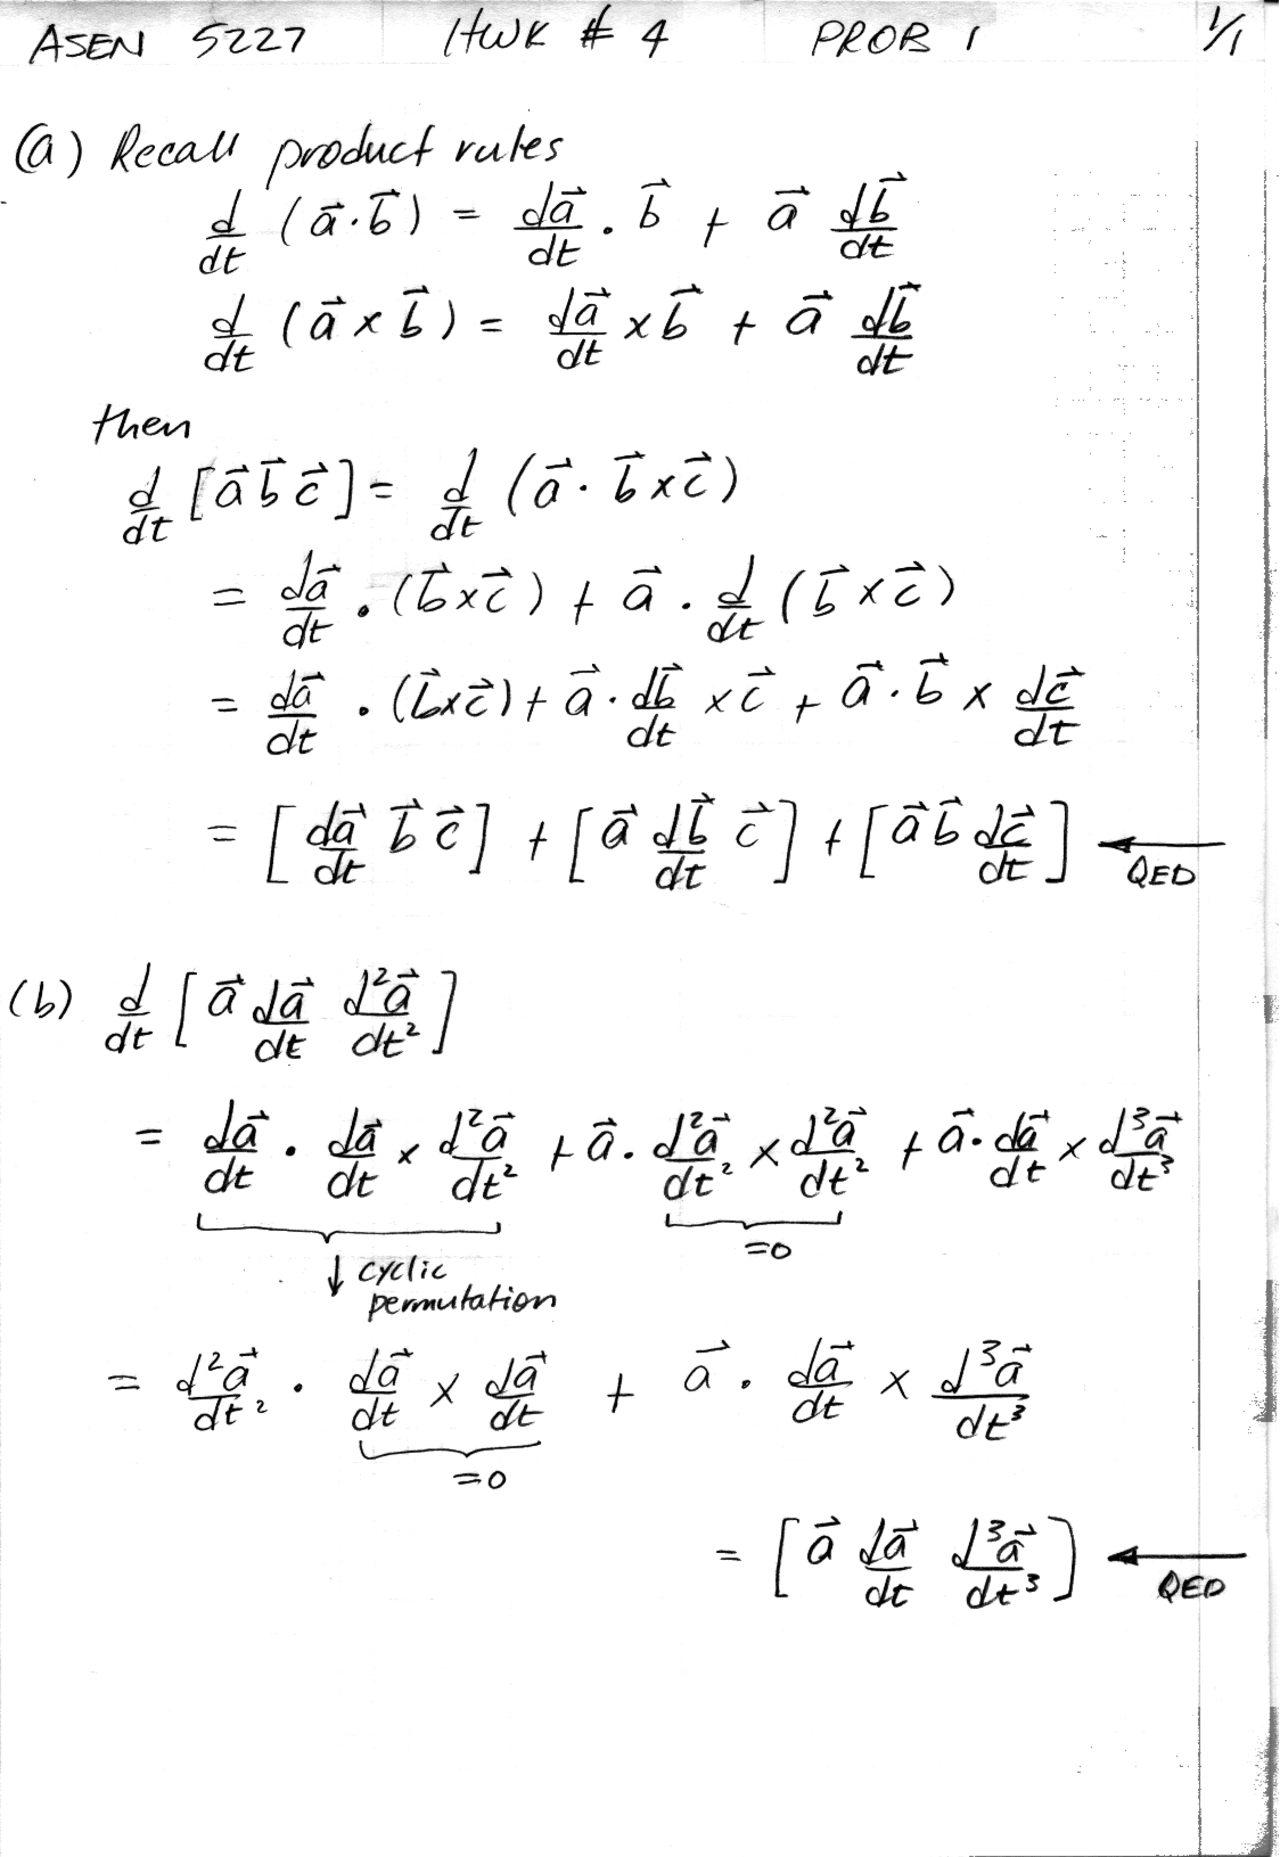 ASEN 5227 HWK # 4 PROB 1 1/1
(a) Recall product rules
d/dt (a⃗·b⃗) = da⃗/dt · b⃗ + a⃗ db⃗/dt
d/dt (a⃗ × b⃗) = da⃗/dt × b⃗ + a⃗ db⃗/dt
then
d/dt [a⃗ b⃗ c⃗] = d/dt (a⃗ · b⃗ × c⃗)
= da⃗/dt · (b⃗ × c⃗) + a⃗ · d/dt (b⃗ × c⃗)
= da⃗/dt · (b⃗ × c⃗) + a⃗ · db⃗/dt × c⃗ + a⃗ · b⃗ × dc⃗/dt
= [da⃗/dt b⃗ c⃗] + [a⃗ db⃗/dt c⃗] + [a⃗ b⃗ dc⃗/dt] ← QED
(b) d/dt [a⃗ da⃗/dt d²a⃗/dt²]
= da⃗/dt · da⃗/dt × d²a⃗/dt² + a⃗ · d²a⃗/dt² × d²a⃗/dt² + a⃗ · da⃗/dt × d³a⃗/dt³
=0
↓ cyclic
permutation
= d²a⃗/dt² · da⃗/dt × da⃗/dt + a⃗ · da⃗/dt × d³a⃗/dt³
=0
= [a⃗ da⃗/dt d³a⃗/dt³] ← QED